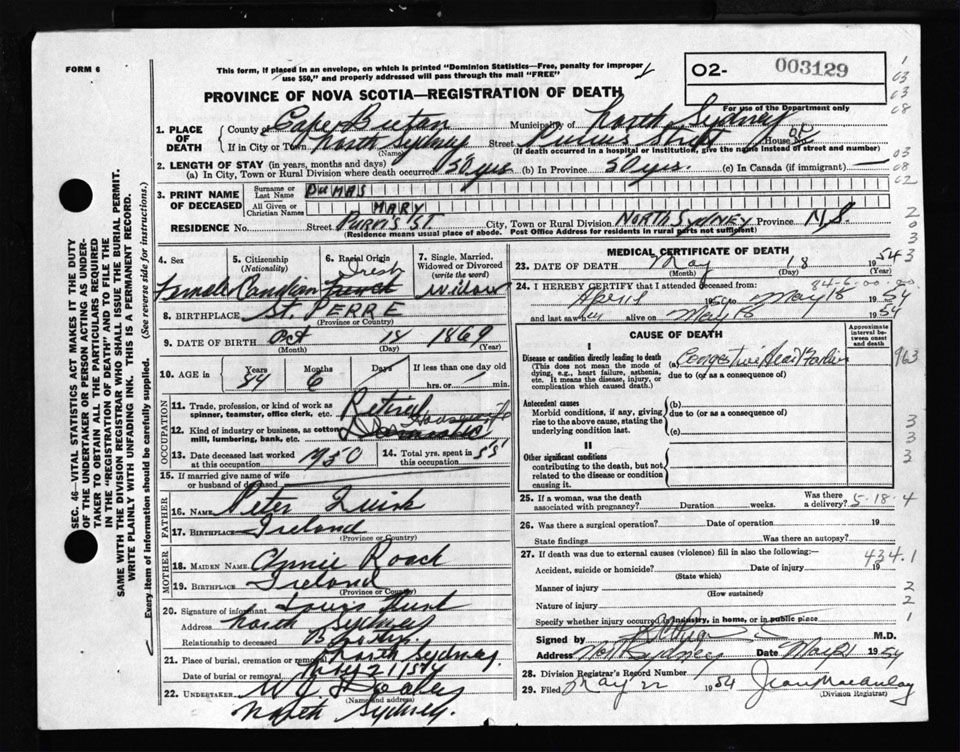 FORM 6
This form, if placed in an envelope, on which is printed "Dominion Statistics—Free, penalty for improper
use $50," and properly addressed will pass through the mail "FREE"
O2- 003129
PROVINCE OF NOVA SCOTIA—REGISTRATION OF DEATH
For use of the Department only
1. PLACE OF DEATH
County of Cape Breton Municipality of North Sydney
If in City or Town North Sydney Street Purvis Street House No.
(Name) (If death occurred in a hospital or institution, give the name instead of street and number)
2. LENGTH OF STAY (in years, months and days)
(a) In City, Town or Rural Division where death occurred 50 yrs (b) In Province 50 yrs. (c) In Canada (if immigrant)
3. PRINT NAME OF DECEASED
Surname or Last Name DUMAS
All Given or Christian Names MARY
RESIDENCE No. Street PURVIS ST. City, Town or Rural Division NORTH SYDNEY Province N.S.
(Residence means usual place of abode. Post Office Address for residents in rural parts not sufficient)
4. Sex Female
5. Citizenship (Nationality) Canadian
6. Racial Origin Irish French
7. Single, Married, Widowed or Divorced (write the word) Widow
8. BIRTHPLACE ST. PERRE
(Province or Country)
9. DATE OF BIRTH Oct 18 1869
(Month) (Day) (Year)
10. AGE in Years 84 Months 6 Days If less than one day old hrs. or min.
OCCUPATION
11. Trade, profession, or kind of work as spinner, teamster, office clerk, etc. Retired
12. Kind of industry or business, as cotton mill, lumbering, bank, etc. Housewife Domestic
13. Date deceased last worked at this occupation 1950
14. Total yrs. spent in this occupation 55
15. If married give name of wife or husband of deceased
FATHER
16. Name Peter Quirk
17. Birthplace Ireland
(Province or Country)
MOTHER
18. MAIDEN NAME Annie Roach
19. BIRTHPLACE Ireland
(Province or Country)
20. Signature of informant Louis
Address North Sydney
Relationship to deceased
21. Place of burial, cremation or removal North Sydney
Date of burial or removal May 21/54
22. UNDERTAKER W J
(Name and address)
North Sydney.
MEDICAL CERTIFICATE OF DEATH
23. DATE OF DEATH May 18 1954
(Month) (Day) (Year)
24. I HEREBY CERTIFY that I attended deceased from:
April 19 to May 18 1954
and last saw her alive on May 18 1954
CAUSE OF DEATH
Approximate interval between onset and death
I
Disease or condition directly leading to death
(This does not mean the mode of dying, e.g., heart failure, asthenia, etc. It means the disease, injury, or complication which caused death.)
(a) Congestive Heart Failure
due to (or as a consequence of)
Antecedent causes
Morbid conditions, if any, giving rise to the above cause, stating the underlying condition last.
(b)
due to (or as a consequence of)
(c)
II
Other significant conditions
contributing to the death, but not related to the disease or condition causing it.
25. If a woman, was the death associated with pregnancy? Duration weeks. Was there a delivery? 5-18-4
26. Was there a surgical operation? Date of operation 19
State findings Was there an autopsy?
27. If death was due to external causes (violence) fill in also the following:
434.1
Accident, suicide or homicide? Date of injury 19
(State which)
Manner of injury
(How sustained)
Nature of injury
Specify whether injury occurred in industry, in home, or in public place
Signed by M.D.
Address North Sydney Date May 21 1954
28. Division Registrar's Record Number
29. Filed May 22 1954 Jean MacAulay
(Division Registrar)
SEC. 46—VITAL STATISTICS ACT MAKES IT THE DUTY
OF THE UNDERTAKER OR PERSON ACTING AS UNDER-
TAKER TO OBTAIN ALL THE PARTICULARS REQUIRED
IN THE "REGISTRATION OF DEATH" AND TO FILE THE
SAME WITH THE DIVISION REGISTRAR WHO SHALL ISSUE THE BURIAL PERMIT.
WRITE PLAINLY WITH UNFADING INK. THIS IS A PERMANENT RECORD.
Every item of information should be carefully supplied. (See reverse side for instructions.)